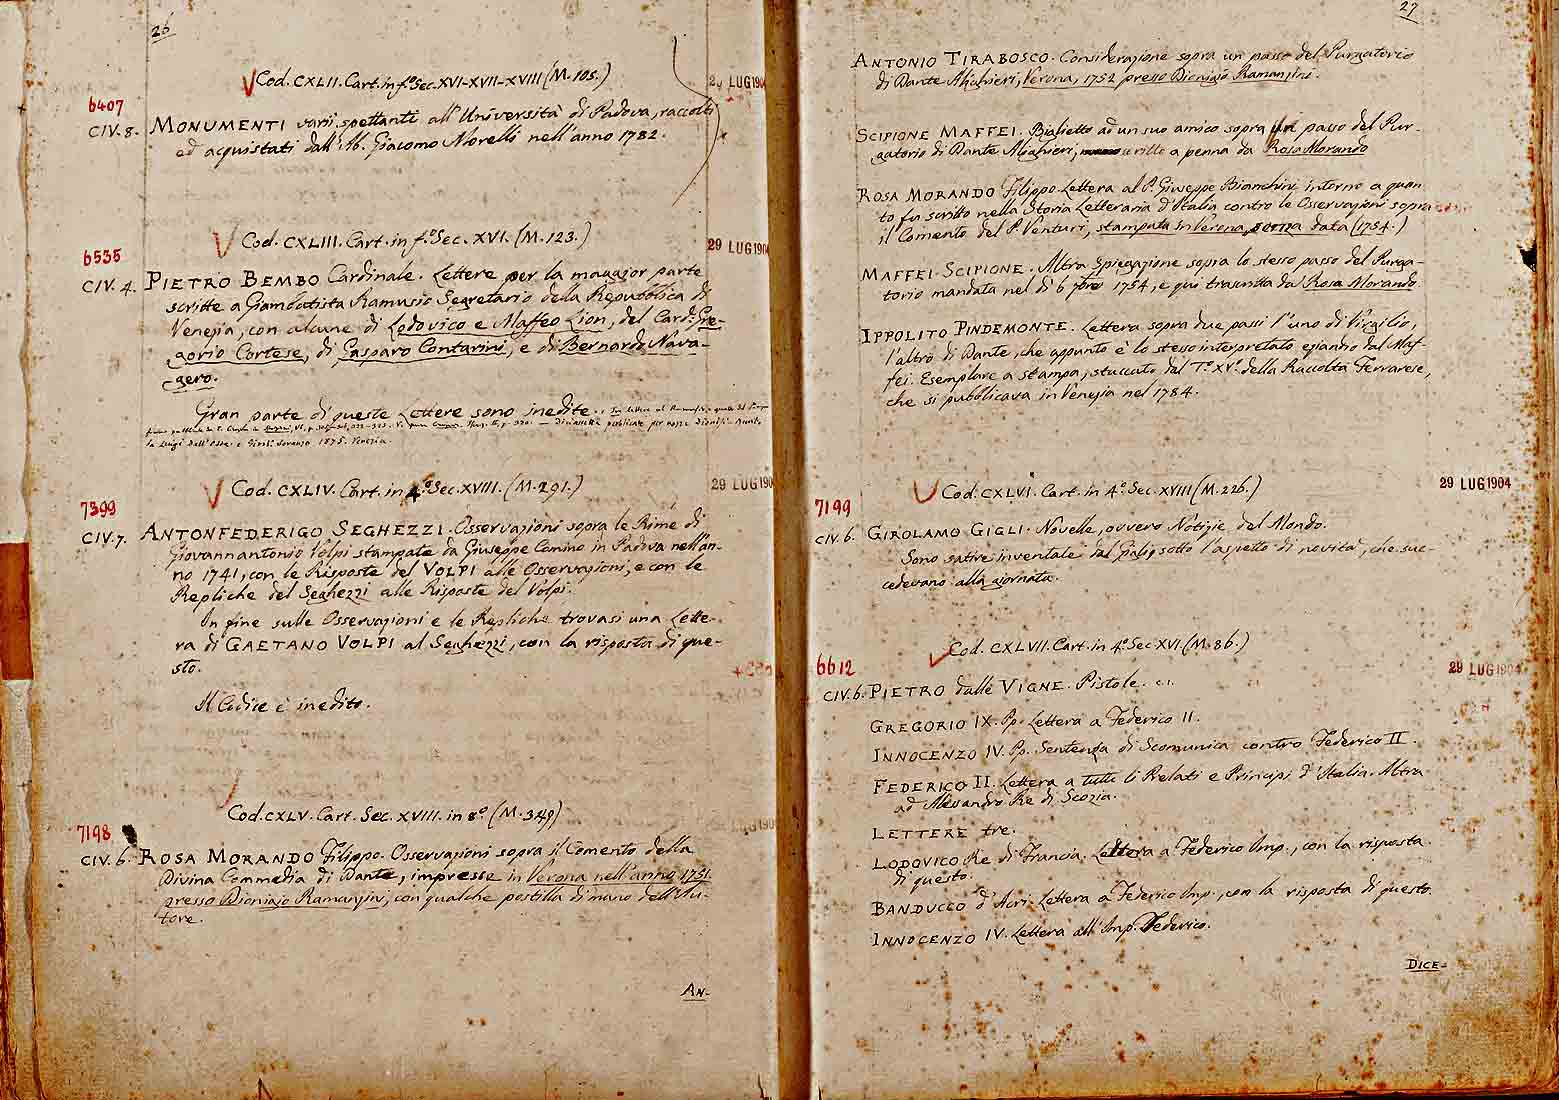 26
Cod. CXLII. Cart. in f.º Sec. XVI-XVII-XVIII (M. 105.)
29 LUG 190
6407
CIV. 8. MONUMENTI varii spettanti all'Università di Padova, raccolti
ed acquistati dall'Ab. Giacomo Morelli nell'anno 1782.
Cod. CXLIII. Cart. in f.º Sec. XVI. (M. 123.)
29 LUG 190
6535
CIV. 4. PIETRO BEMBO Cardinale. Lettere per la maggior parte
scritte a Giambatista Ramusio Segretario della Repubblica di
Venezia, con alcune di Lodovico e Maffeo Lion, del Card. Gre-
gorio Cortese, di Gasparo Contarini, e di Bernardo Nava-
gero.
Gran parte di queste Lettere sono inedite.
1875. Venezia
Cod. CXLIV. Cart. in 4.º Sec. XVIII. (M. 291.)
29 LUG 190
7399
CIV. 7. ANTONFEDERIGO SEGHEZZI. Osservazioni sopra le Rime di
Giovannantonio Volpi stampate da Giuseppe Comino in Padova nell'an-
no 1741, con le Risposte del VOLPI alle Osservazioni, e con le
Repliche del Seghezzi alle Risposte del Volpi.
In fine sulle Osservazioni e le Repliche trovasi una Lette-
ra di GAETANO VOLPI al Seghezzi, con la risposta di que-
sto.
Il Codice è inedito.
Cod. CXLV. Cart. Sec. XVIII. in 8.º (M. 349)
7198
CIV. 6. ROSA MORANDO Filippo. Osservazioni sopra il Comento della
Divina Commedia di Dante, impresse in Verona nell'anno 1751.
presso Dionigio Ramanzini, con qualche postilla di mano dell'Au-
tore.
AN-
27
ANTONIO TIRABOSCO. Considerazione sopra un passo del Purgatorio
di Dante Alighieri, Verona, 1752 presso Dionigio Ramanzini.
SCIPIONE MAFFEI. Biglietto ad un suo amico sopra un passo del Pur-
gatorio di Dante Alighieri, scritto a penna da Rosa Morando
ROSA MORANDO Filippo. Lettera al P. Giuseppe Bianchini intorno a quan-
to fu scritto nella Storia Letteraria d'Italia contro le Osservazioni sopra
il Comento del P. Venturi, stampata in Verona senza data (1754.)
MAFFEI SCIPIONE. Altra spiegazione sopra lo stesso passo del Purga-
torio mandata nel dì 6 7bre 1754, e qui trascritta da Rosa Morando
IPPOLITO PINDEMONTE. Lettera sopra due passi l'uno di Virgilio,
l'altro di Dante, che appunto è lo stesso interpretato eziandio dal Maf-
fei. Esemplare a stampa, staccato dal T.º XV.º della Raccolta Ferrarese,
che si pubblicava in Venezia nel 1784.
Cod. CXLVI. Cart. in 4.º Sec. XVIII (M. 226.)
29 LUG 1904
7199
CIV. 6. GIROLAMO GIGLI. Novelle, ovvero Notizie del Mondo.
Sono satire inventate dal Gigli sotto l'aspetto di novità, che suc-
cedevano alla giornata.
Cod. CXLVII. Cart. in 4.º Sec. XVI. (M. 86.)
29 LUG 1904
6612
CIV. 6. PIETRO dalle VIGNE. Pistole. c. 1.
GREGORIO IX. Pp. Lettera a Federico II.
INNOCENZO IV. Pp. Sentenza di Scomunica contro Federico II.
FEDERICO II. Lettera a tutti li Prelati e Principi d'Italia. Altra
ad Alessandro Re di Scozia.
LETTERE tre.
LODOVICO Re di Francia. Lettera a Federico Imp., con la risposta
di questo.
BANDUCCO d'Acri. Lettera a Federico Imp., con la risposta di questo.
INNOCENZO IV. Lettera all'Imp. Federico.
DICE-